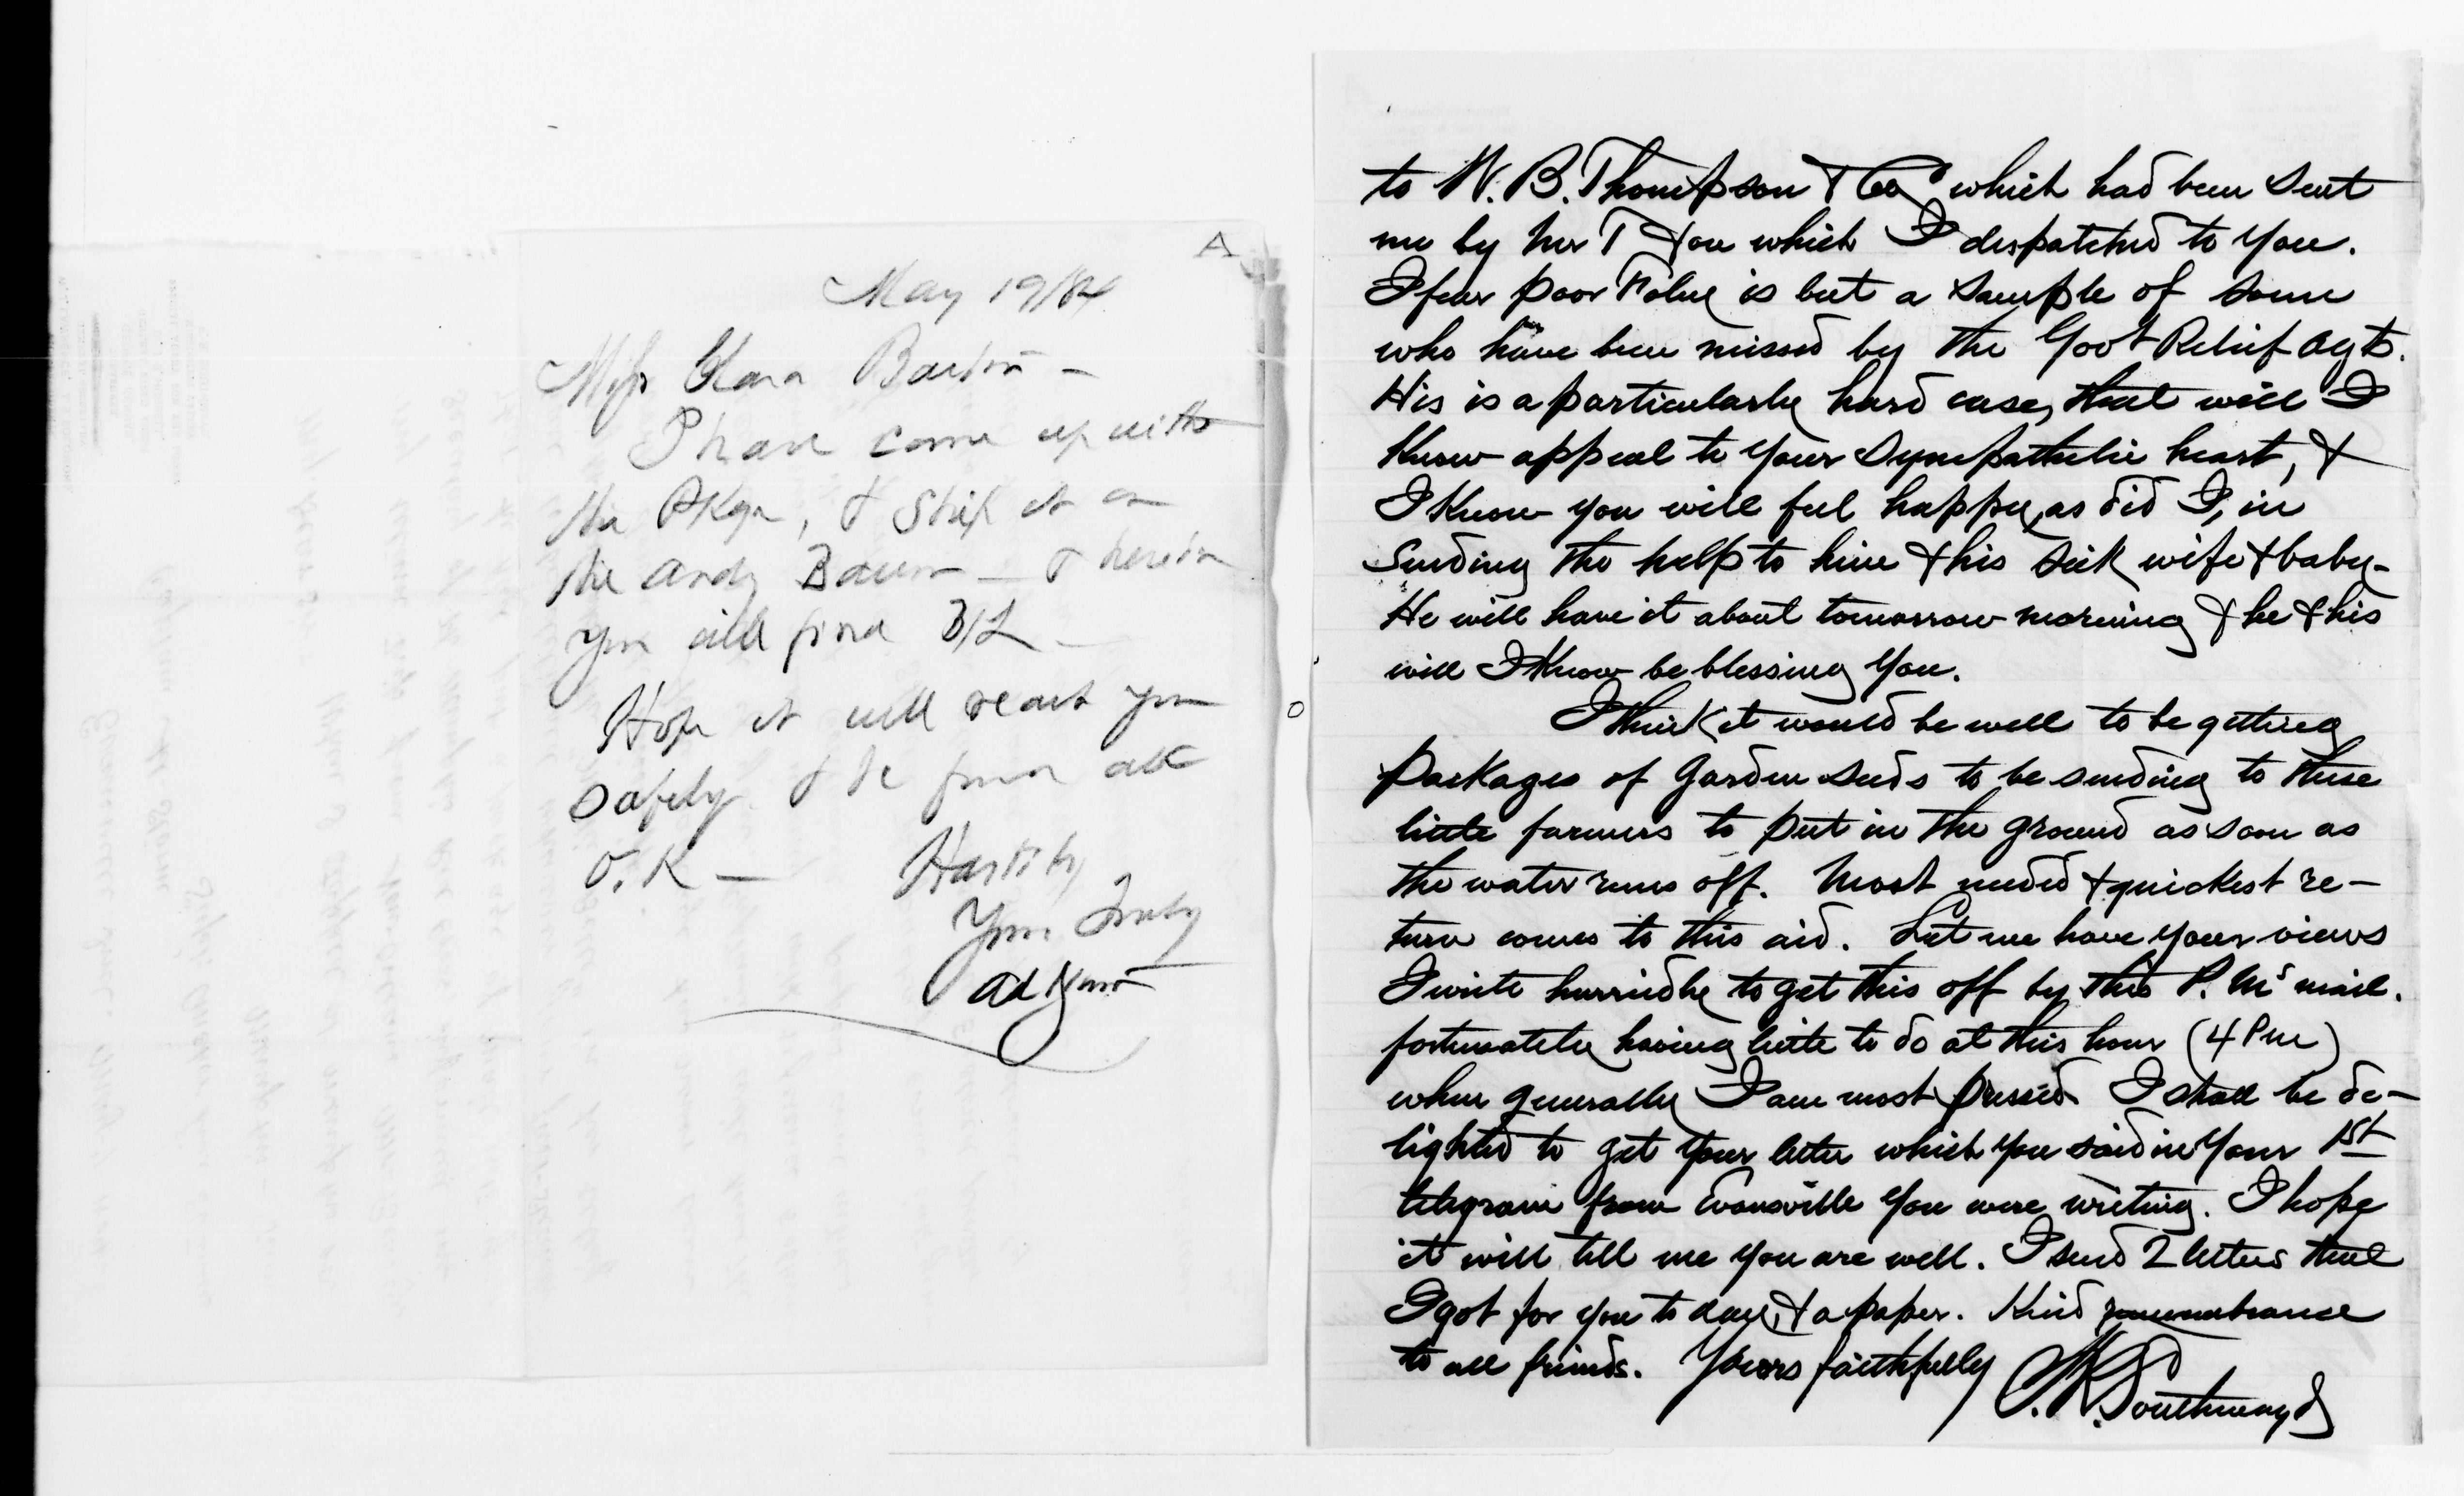 A
May 19/84
Miss Clara Barton –
I have come up with
the Pkge, & Ship it on
the Andy Baum – & herein
you will find B/L –
Hope it will reach you
safely & be found all
O.K – Hastily
Yours Truly
to W. B. Thompson & Co which had been sent
me by her & you which I despatched to you.
I fear poor is but a sample of some
who have been missed by the Govt Relief Agts.
His is a particularly hard case, that will I
Know appeal to your Sympathetic heart, &
I Know you will feel happy, as did I, in
Sending the help to him & his sick wife & baby –
He will have it about tomorrow morning & he & his
will I Know be blessing you.
I think it would be well to be getting
packages of Garden seeds to be sending to these
little farmers to put in the ground as soon as
the water runs off. Most needed & quickest re–
turn comes to this aid. Let me have your views
I write hurriedly to get this off by this P.Ms mail.
fortunately having little to do at this hour (4 Pm)
when generally I am most pressed I shall be de–
lighted to get your letter which you said in your 1st
telegram from Evansville you were writing. I hope
it will tell me you are well. I send 2 letters that
I got for you to day, & a paper. Kind remembrance
to all friends. Yours faithfully
Southmayd